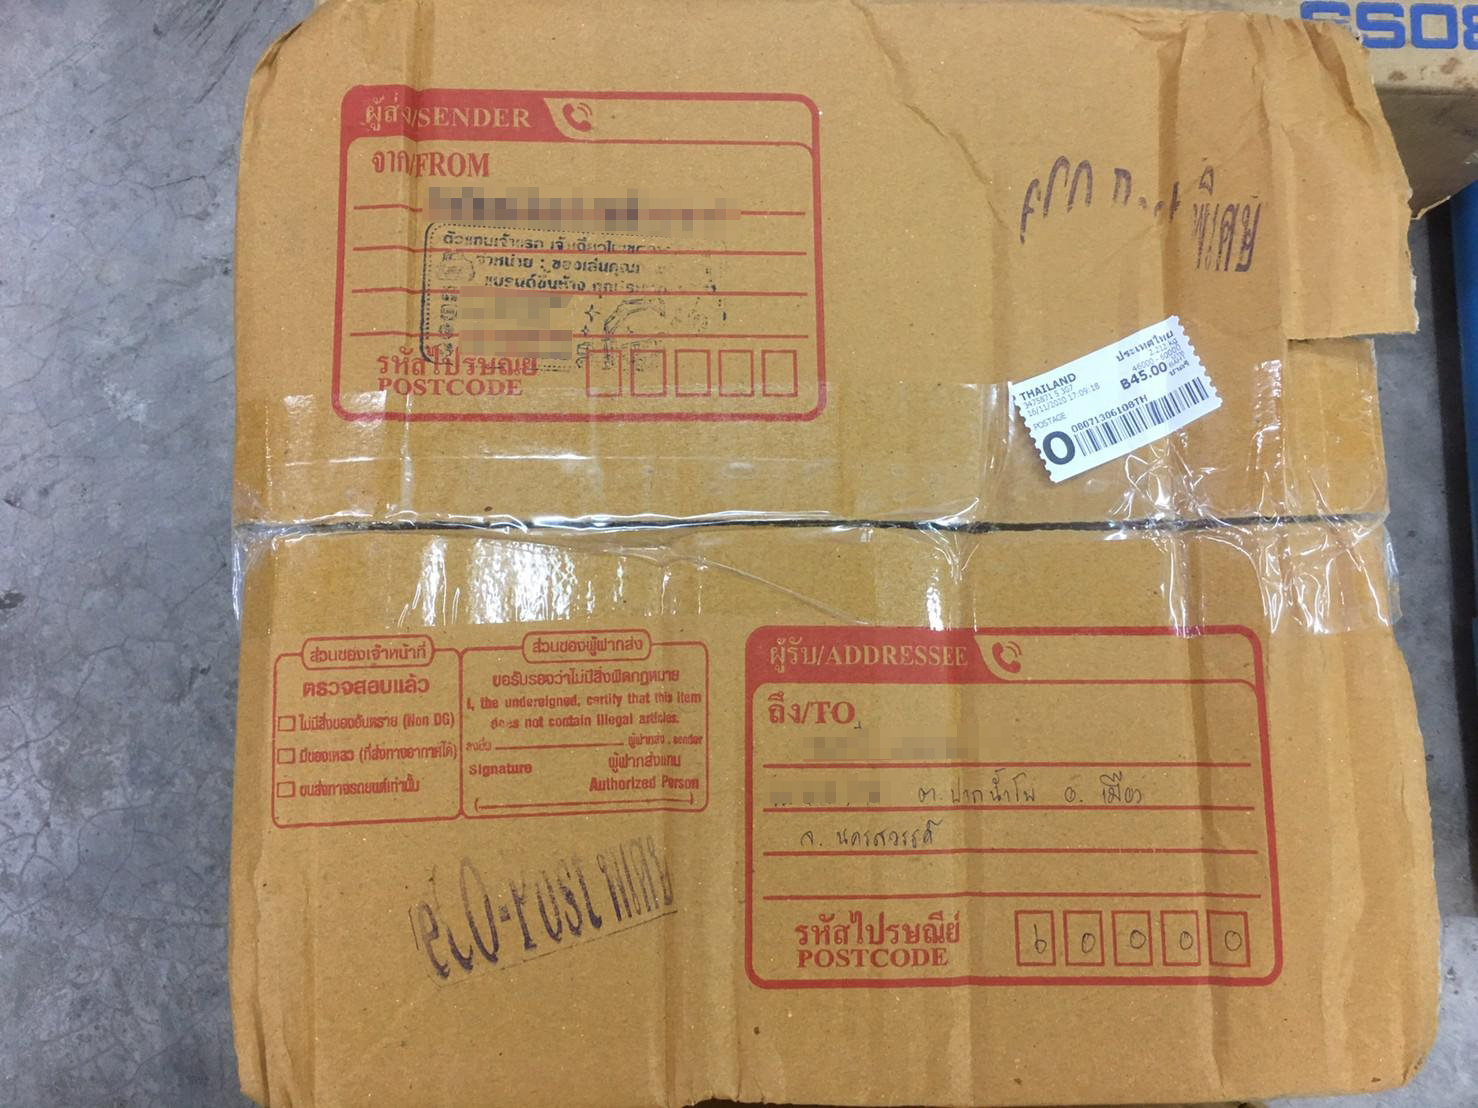 BOSS
ผู้ส่ง/SENDER
จาก/FROM
ตัวแทนเจ้าแรก เจ้าเดียวในเขต
จำหน่าย : ของเล่นคุณ
แบรนด์ขึ้นห้าง
รหัสไปรษณีย์
POSTCODE
พิเศษ
THAILAND
ประเทศไทย
3475871 5 307
2.212 KG
16/11/2020 17:09:18
46000 - 60000
POSTAGE
฿45.00
O
OB071306108TH
ส่วนของเจ้าหน้าที่
ตรวจสอบแล้ว
ไม่มีสิ่งของอันตราย (Non DG)
มีของเหลว (ที่ส่งทางอากาศได้)
ขนส่งทางรถยนต์เท่านั้น
ส่วนของผู้ฝากส่ง
ขอรับรองว่าไม่มีสิ่งผิดกฎหมาย
I, the undersigned, certify that this item
does not contain illegal articles.
ลงชื่อ ผู้ฝากส่ง . sender
Signature ผู้ฝากส่งแทน
Authorized Person
ผู้รับ/ADDRESSEE
ถึง/TO
ต. ปากน้ำโพ อ. เมือง
จ. นครสวรรค์
รหัสไปรษณีย์
POSTCODE
6 0 0 0 0
eCO-Post พิเศษ